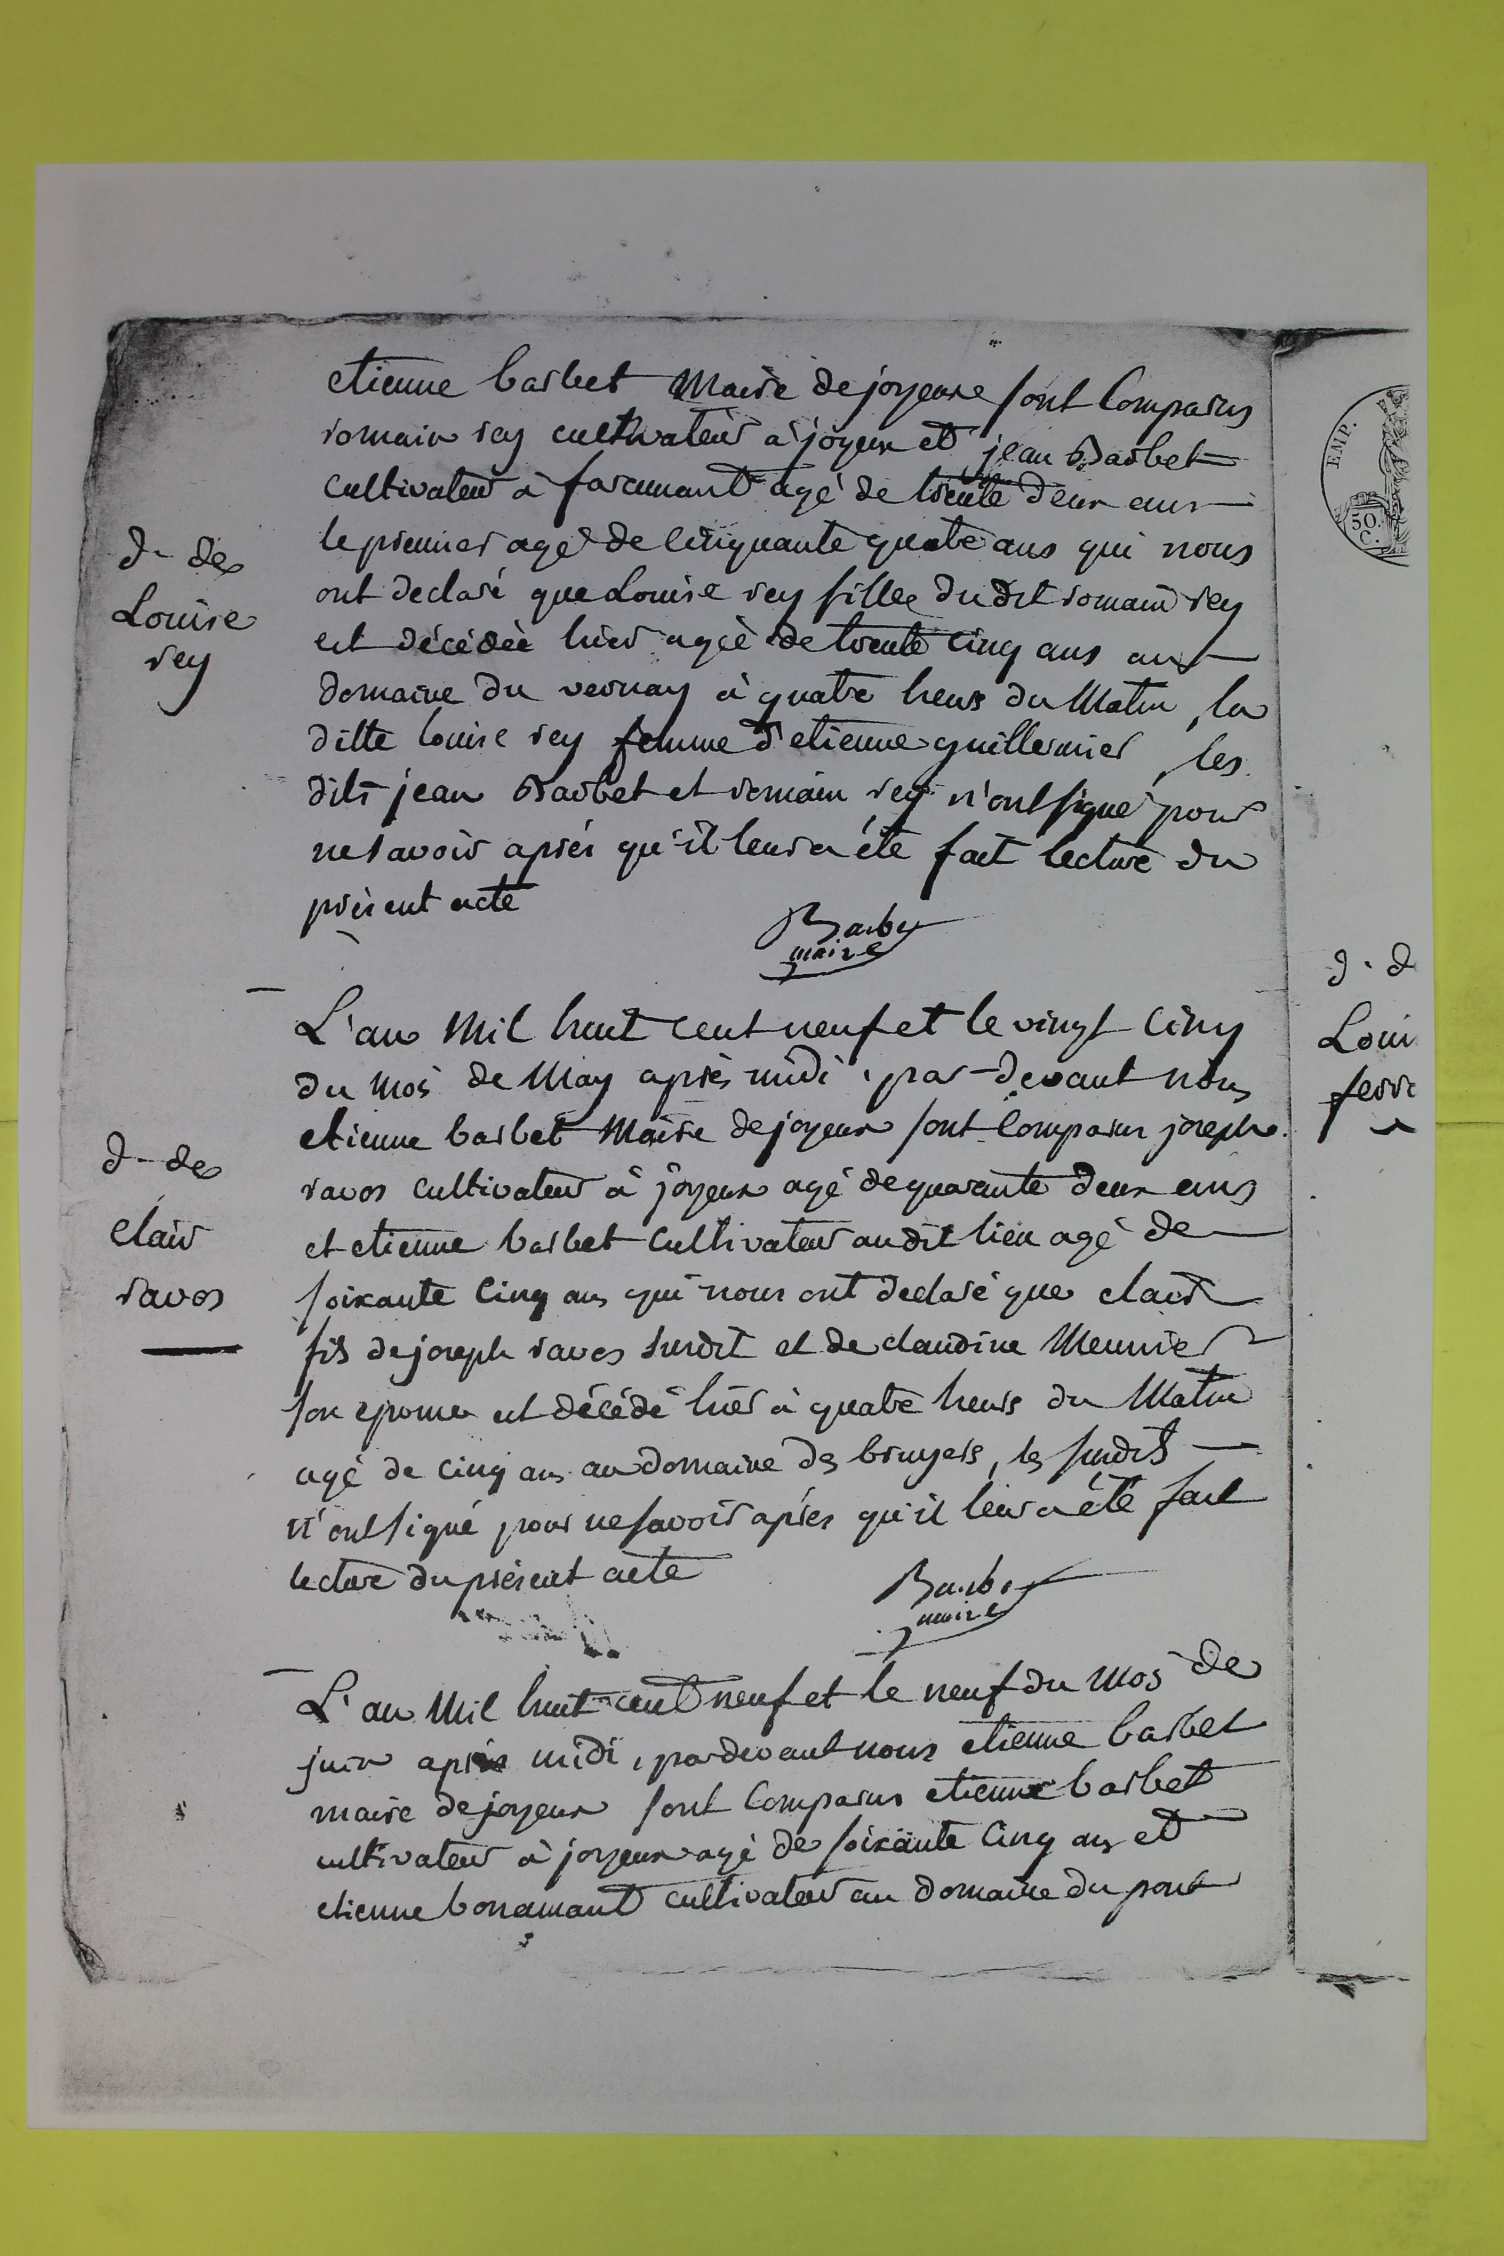 etienne barbet Maire de joyeux sont Comparus
romain rey cultivateur a joyeux et jean Barbet
cultivateur à faramant agé de trente deux ans
le premier agé de cinquante quatre ans qui nous
d- de
ont declaré que Louise rey fille du dit romain rey
Louise
est décédée hier agée de trente cinq ans au
rey
domaine du vernay à quatre heurs du Matin, la
ditte louise rey femme d'etienne guillermier, les
dits jean Barbet et romain rey n'ont signé pour
ne savoir aprés qu'il leur a été fait lecture du
présent acte
Barbet
maire
L'an Mil huit cent neuf et le vingt cinq
du mois de May après midi, par-devant nous
etienne barbet Maire de joyeux sont Comparus joseph
d- de
ravos cultivateur à joyeux agé de quarante deux ans
clair
et etienne barbet cultivateur au dit lieu agé de
ravos
soixante cinq ans qui nous ont declaré que clair
fils de joseph ravos susdit et de claudine Meunier
son epouse est décédé hier à quatre heurs du Matin
agé de cinq ans au domaine des bruyers, les susdits
n'ont signé pour ne savoir aprés qu'il leur a été fait
lecture du présent acte
Barbet
maire
L'an Mil huit cent neuf et le neuf du mois de
juin aprés midi, pardevant nous etienne barbet
maire de joyeux sont Comparus etienne barbet
cultivateur à joyeux agé de soixante cinq ans et
etienne bonamant cultivateur au domaine du pont
EMP.
50.
C.
d. d
Loui
ferr